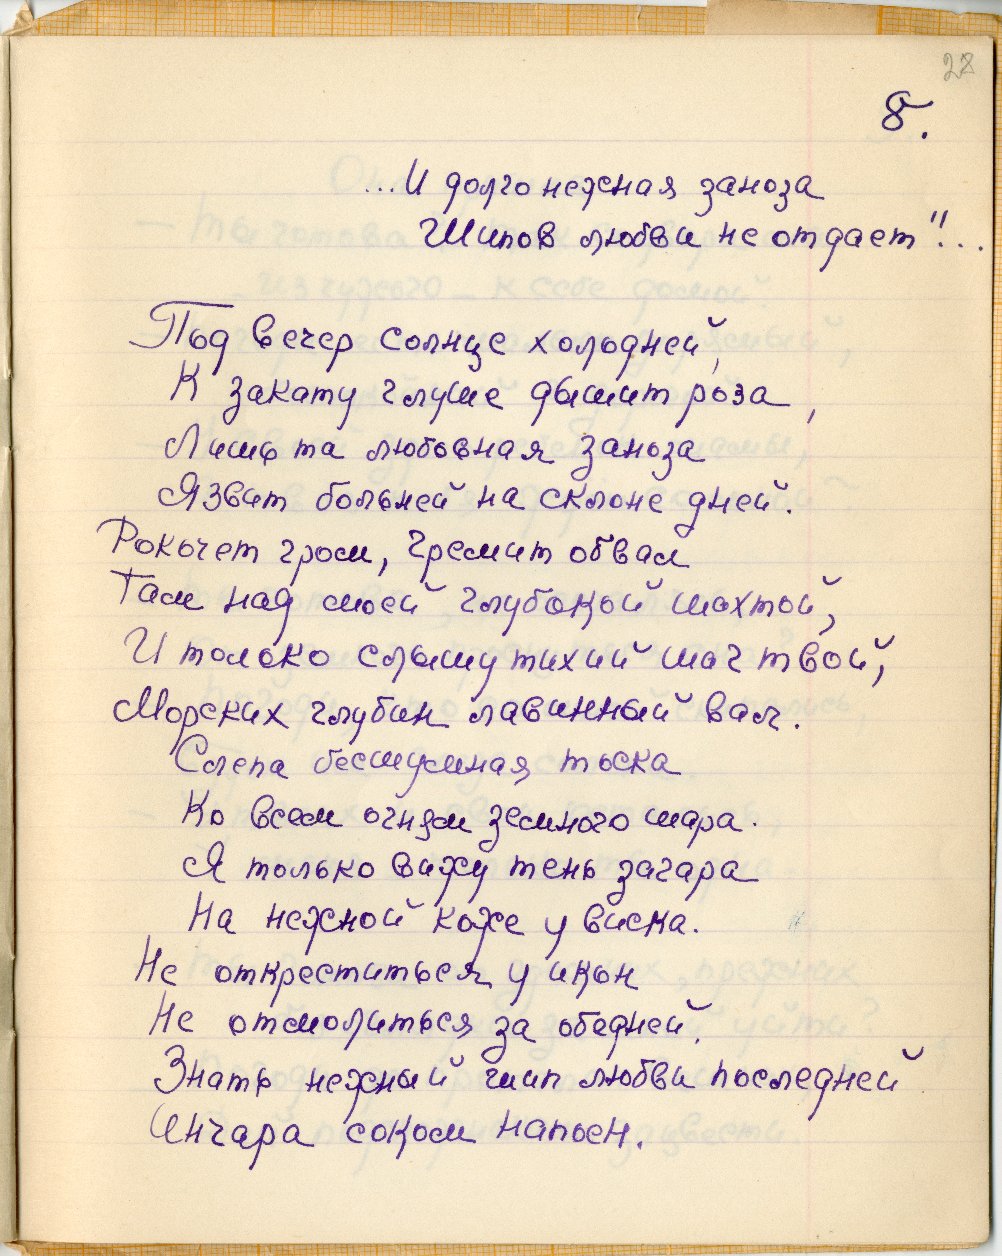 28
8.
...И долго нежная заноза
Шипов любви не отдает"!...
Под вечер солнце холодней,
К закату глуше дышит роза,
Лишь та любовная заноза
Язвит больней на склоне дней.
Рокочет гром, гремит обвал
Там над моей глубокой шахтой,
И только слышу тихий шаг твой,
Морских глубин лавинный вал.
Слепа бесшумная тоска
Ко всем огням земного шара.
Я только вижу тень загара
На нежной коже у виска.
Не откреститься у икон
Не отмолиться за обедней,
Знать нежный шип любви последней
Анчара соком напоен.